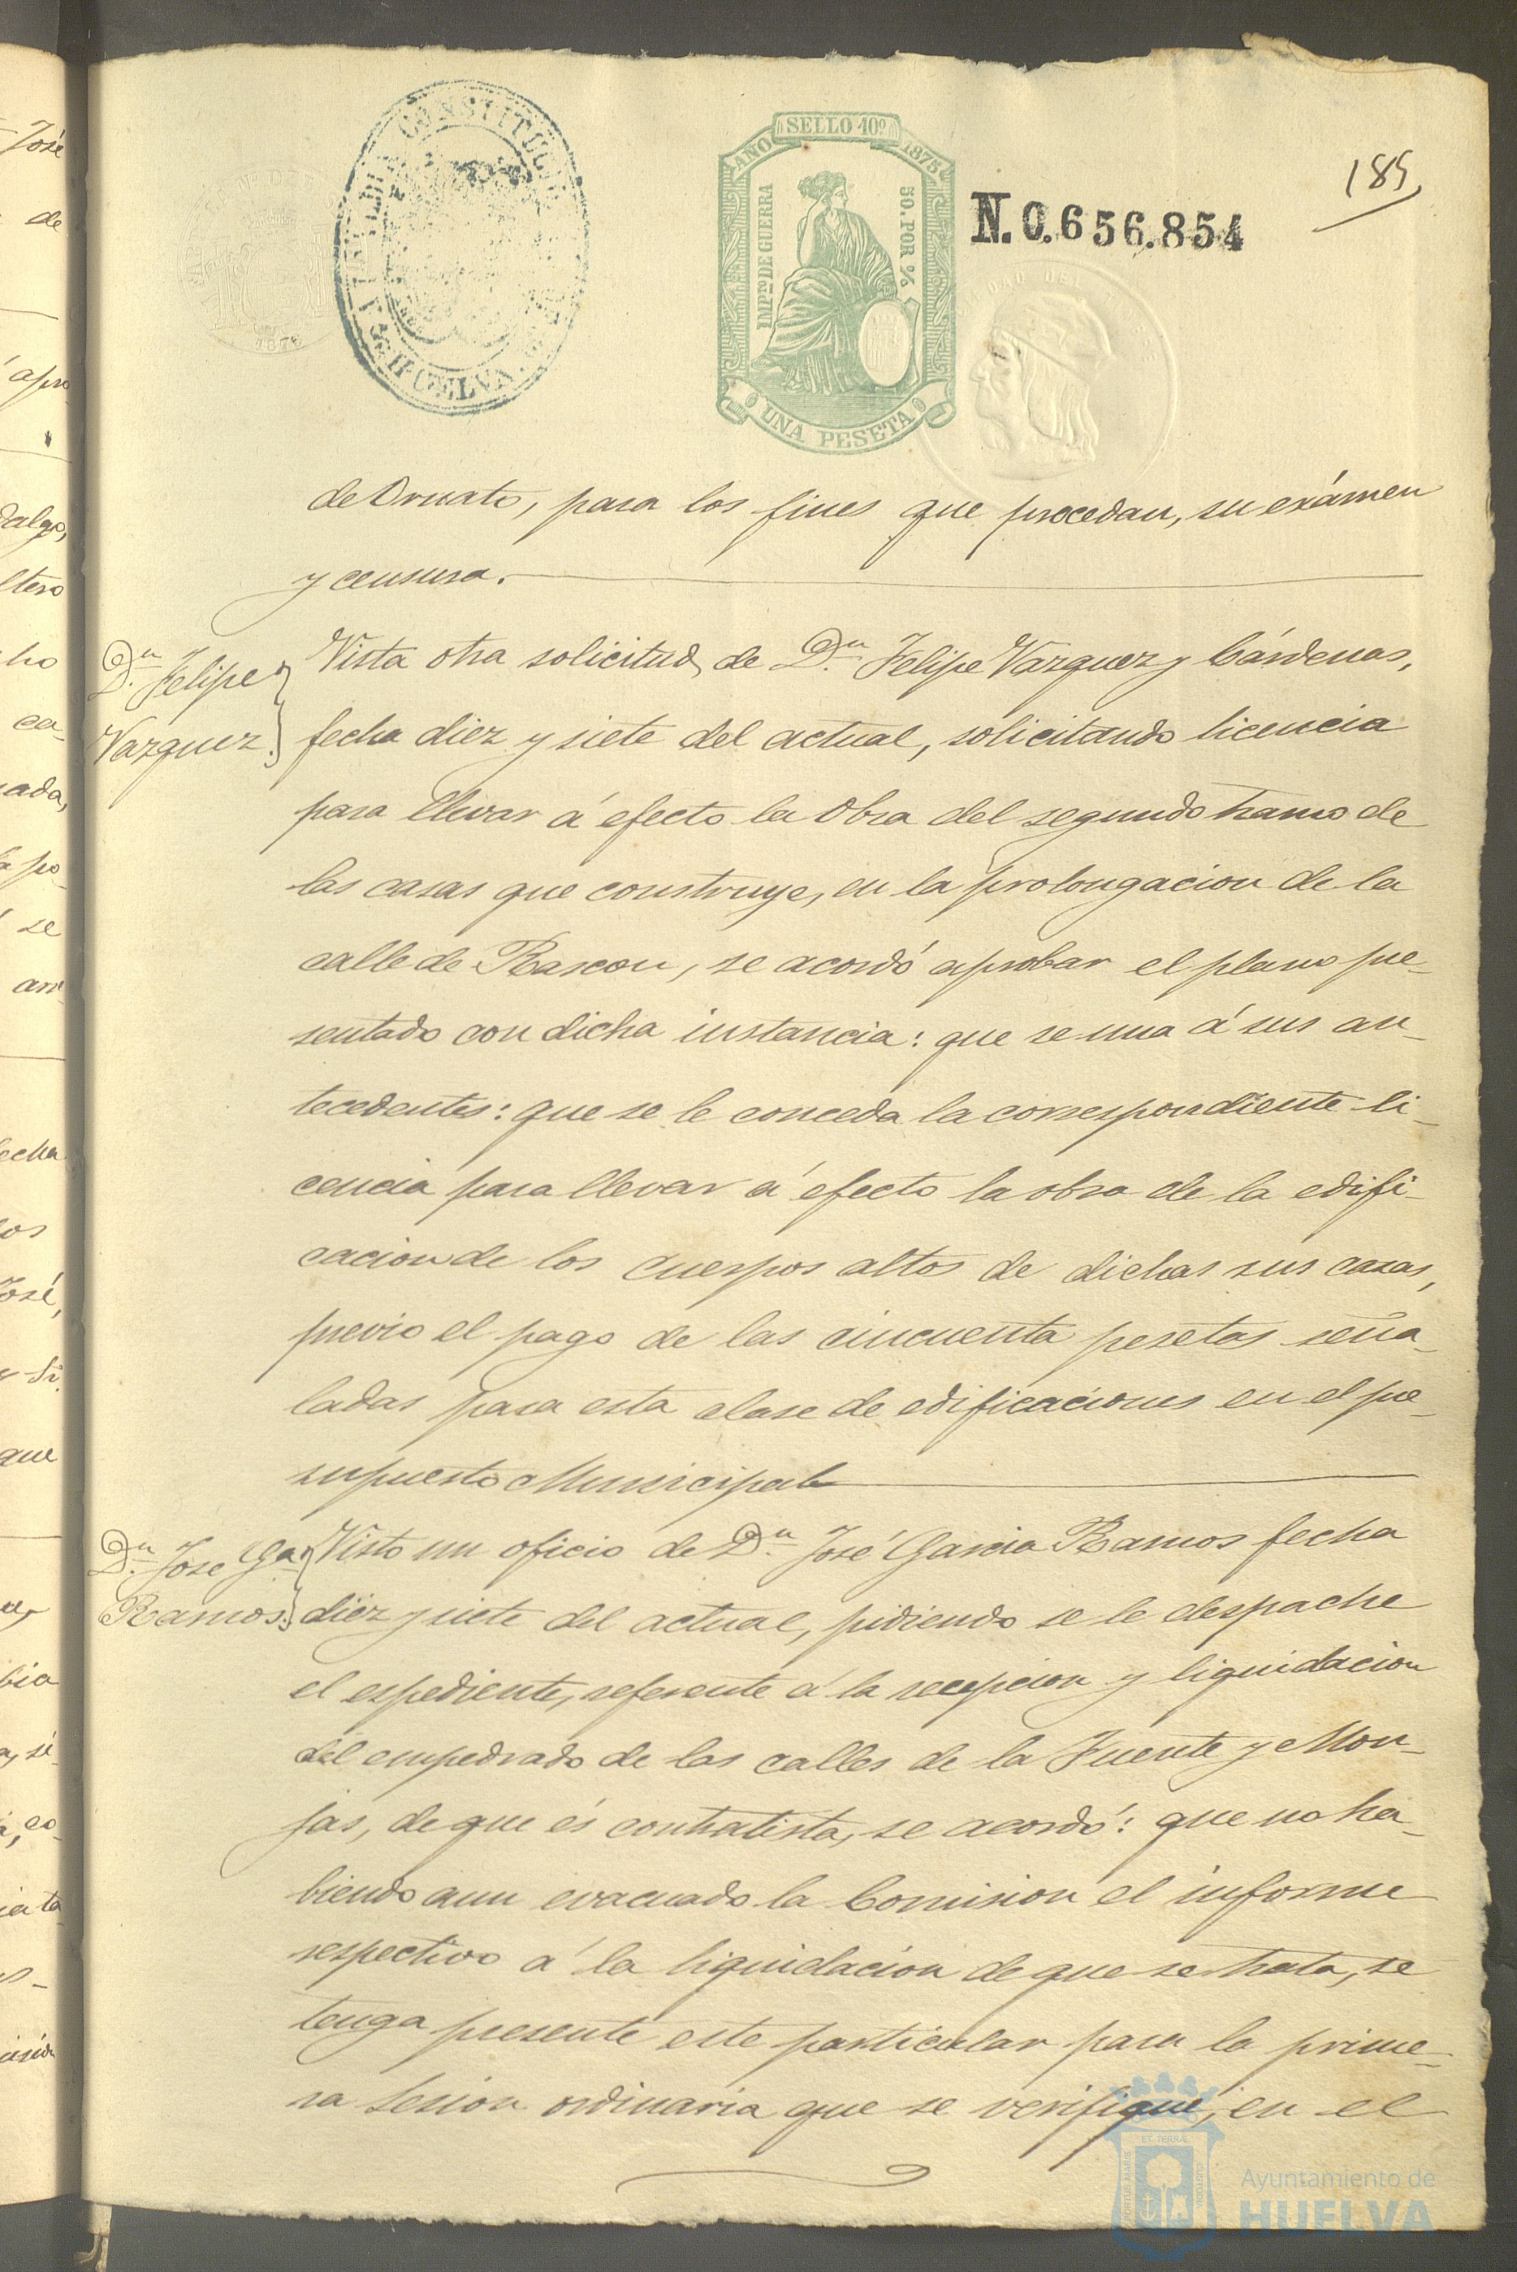 185,
ALCALDIA CONSTITUCIONAL
DE HUELVA
SELLO 10º
AÑO 1875
IMPto DE GUERRA
50. POR %
UNA PESETA
N.0.656.854
de Ornato, para los fines que procedan, su exámen
y censura.
Dn. Felipe
Vazquez.
Vista otra solicitud de Dn. Felipe Vazquez y Cárdenas,
fecha diez y siete del actual, solicitando licencia
para llevar á efecto la obra del segundo tramo de
las casas que construye, en la prolongacion de la
calle de Rascon, se acordó aprobar el plano pre-
sentado con dicha instancia: que se una á sus an-
tecedentes: que se le conceda la correspondiente li-
cencia para llevar á efecto la obra de la edifi-
cacion de los cuerpos altos de dichas sus casas,
previo el pago de las cincuenta pesetas seña-
ladas para esta clase de edificaciones en el pre-
supuesto Municipal
Dn. Jose Ga.
Ramos.
Visto un oficio de Dn. José Garcia Ramos fecha
diez y siete del actual, pidiendo se le despache
el espediente, referente á la recepcion y liquidacion
del empedrado de las calles de la Fuente y Mon-
jas, de que és contratista, se acordó: que no ha-
biendo aun evacuado la Comision el informe
respectivo á la liquidacion de que se trata, se
tenga presente este particular para la prime-
ra sesion ordinaria que se verifique, en el
Ayuntamiento de
HUELVA